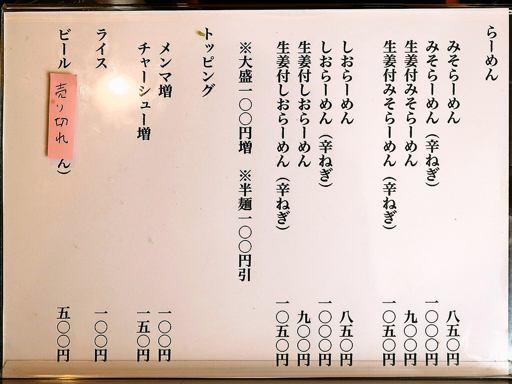 らーめん
みそらーめん 八五〇円
みそらーめん（辛ねぎ） 一〇〇〇円
生姜付みそらーめん 九〇〇円
生姜付みそらーめん（辛ねぎ） 一〇五〇円
しおらーめん 八五〇円
しおらーめん（辛ねぎ） 一〇〇〇円
生姜付しおらーめん 九〇〇円
生姜付しおらーめん（辛ねぎ） 一〇五〇円
※大盛一〇〇円増 ※半麺一〇〇円引
トッピング
メンマ増 一〇〇円
チャーシュー増 一五〇円
ライス 一〇〇円
ビール ん） 五〇〇円
売り切れ